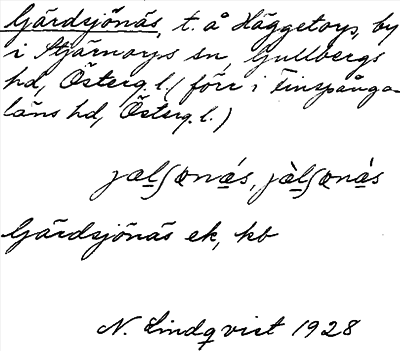 Gärdsjönäs, t. å Häggetorp, by
i Stjärnorps sn, Gullbergs
hd, Österg. l. (förr i Finspånga-
läns hd, Österg. l.)
Gärdsjönäs ek, kb
N. Lindqvist 1928